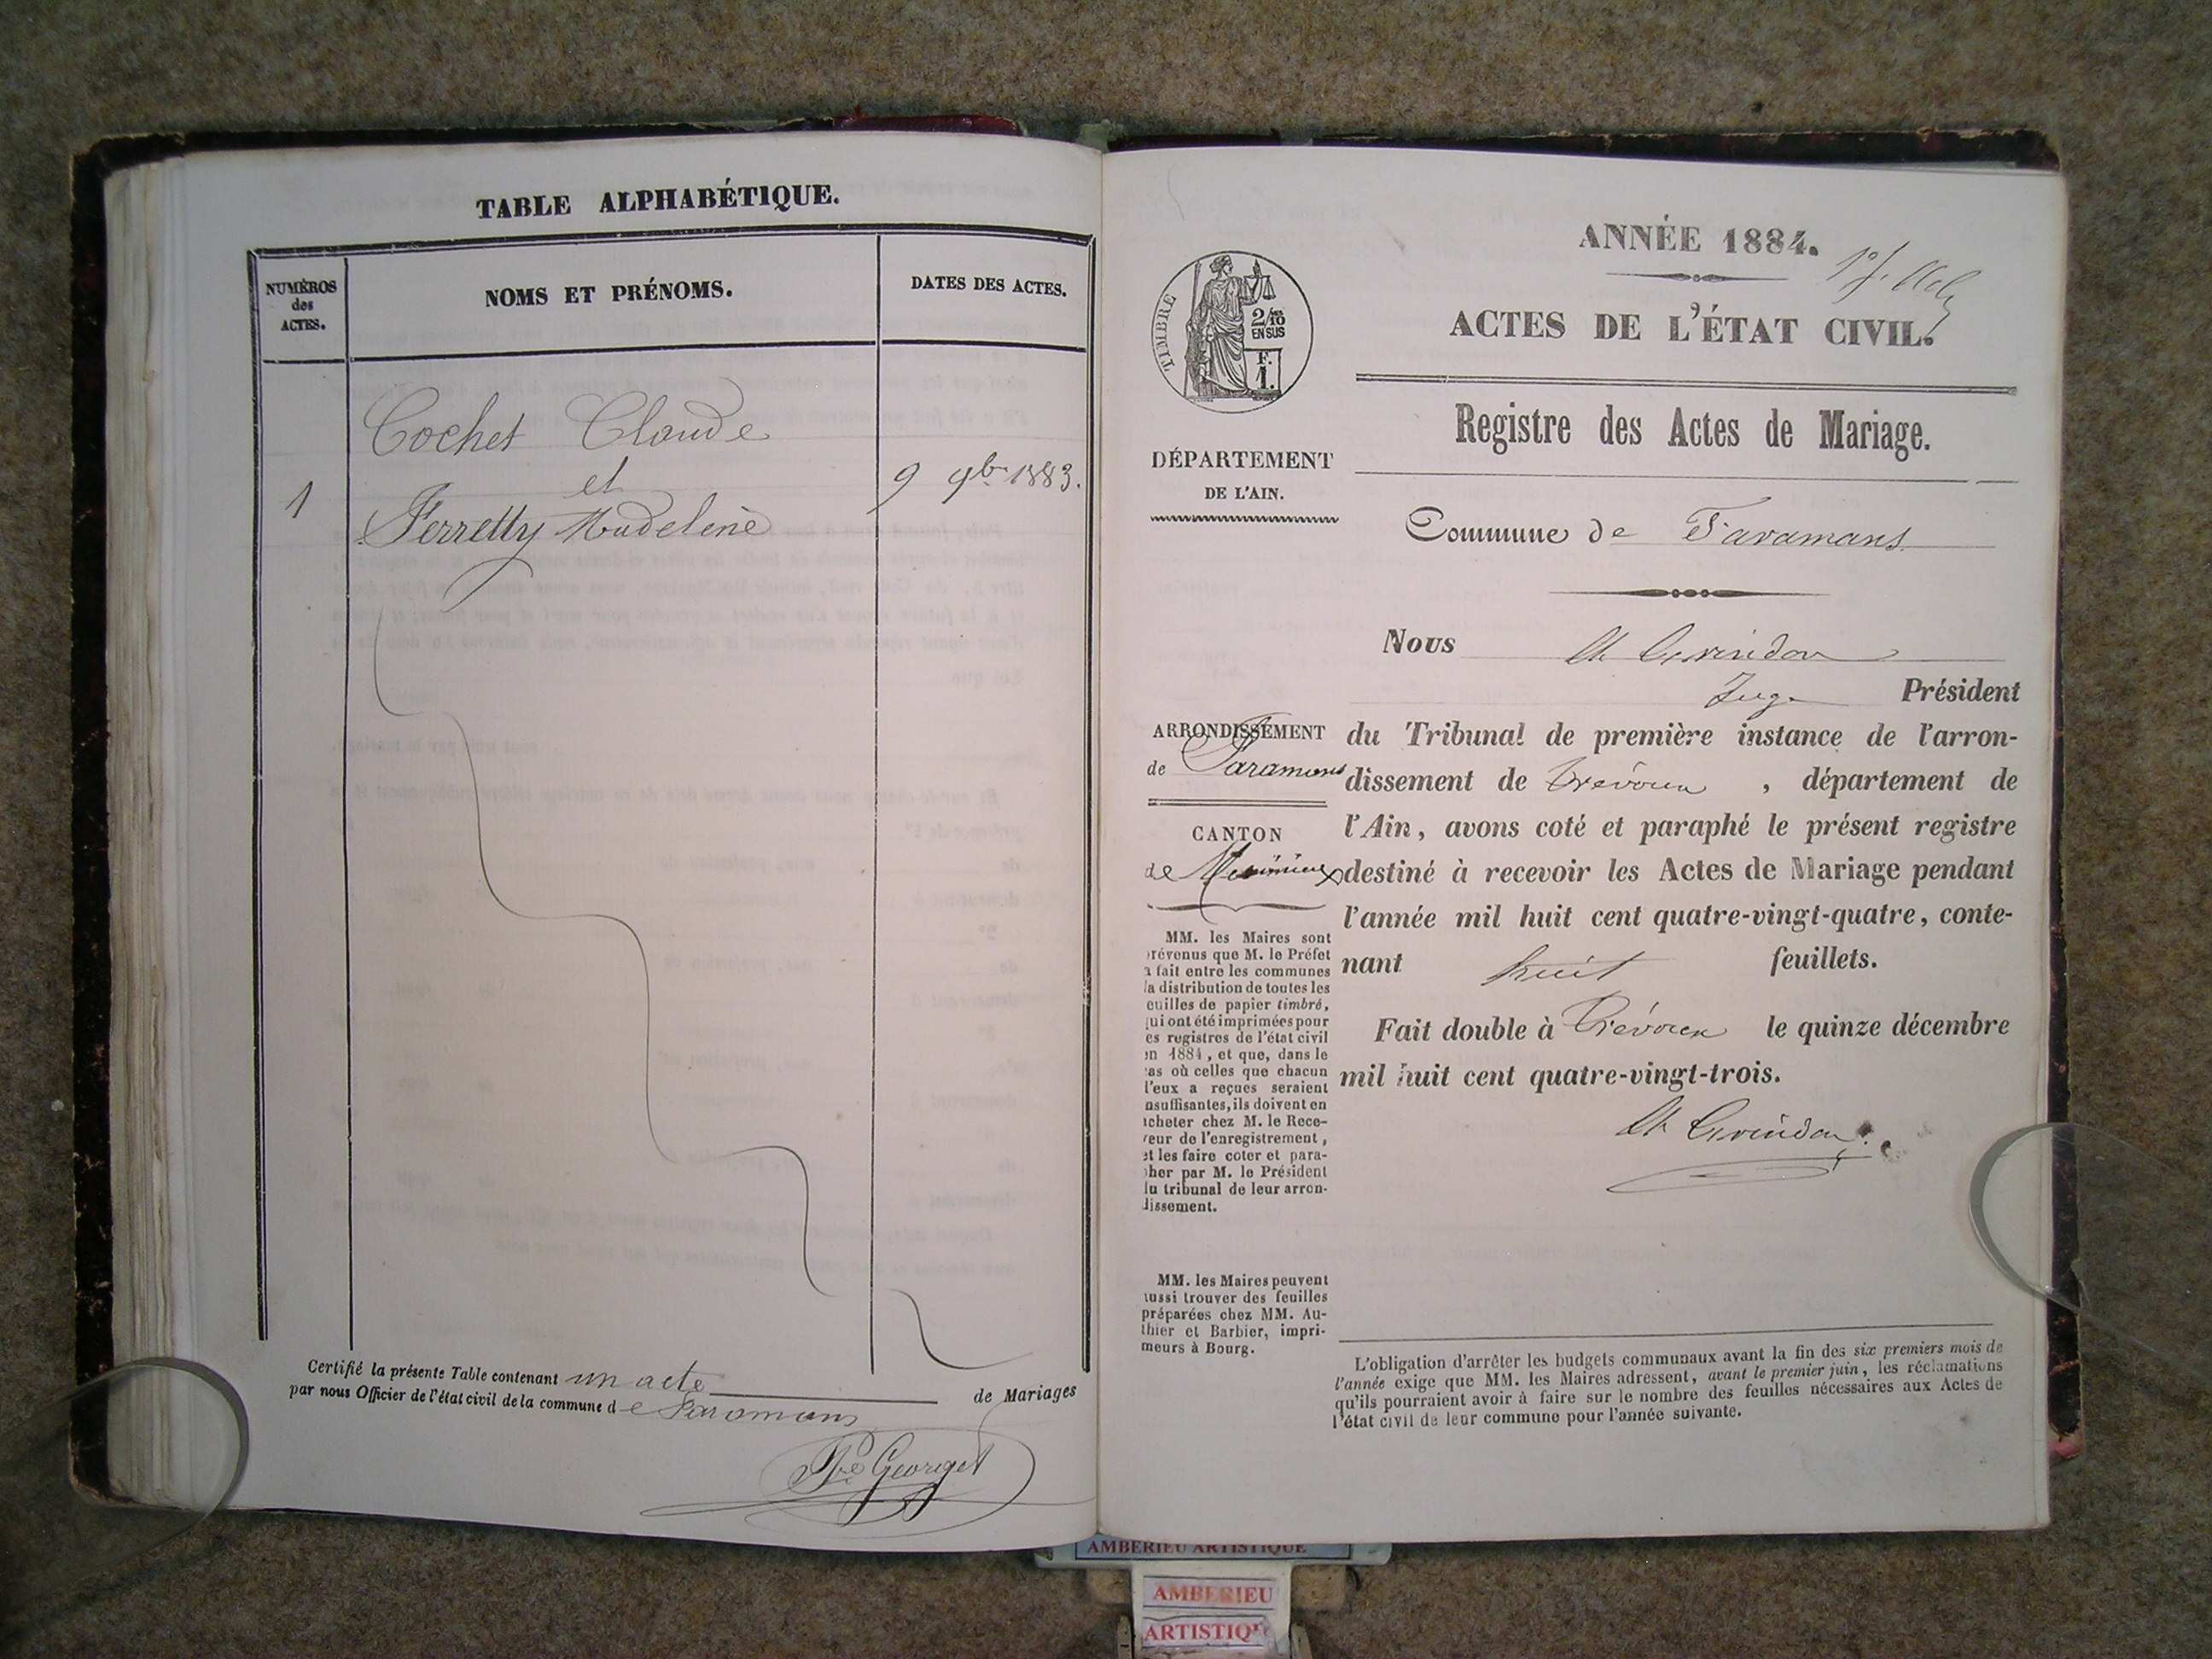 TABLE ALPHABÉTIQUE.
NUMÉROS
des
ACTES.
NOMS ET PRÉNOMS.
DATES DES ACTES.
Cochet Claude
et
1
9 9bre 1883.
Ferretty Madeleine
Certifié la présente Table contenant un acte de Mariages
par nous Officier de l'état civil de la commune de Faramans
Georget
ANNÉE 1884.
ACTES DE L'ÉTAT CIVIL.
TIMBRE
2/10
EN SUS
F.
1.
Registre des Actes de Mariage.
DÉPARTEMENT
DE L'AIN.
Commune de Faramans
Nous
Juge Président
ARRONDISSEMENT
de Faramans
du Tribunal de première instance de l'arron-
dissement de Trévoux, département de
l'Ain, avons coté et paraphé le présent registre
destiné à recevoir les Actes de Mariage pendant
l'année mil huit cent quatre-vingt-quatre, conte-
nant huit feuillets.
Fait double à Trévoux le quinze décembre
mil huit cent quatre-vingt-trois.
CANTON
de Meximieux
MM. les Maires sont
révenus que M. le Préfet
a fait entre les communes
la distribution de toutes les
euilles de papier timbré,
qui ont été imprimées pour
es registres de l'état civil
en 1884, et que, dans le
cas où celles que chacun
l'eux a reçues seraient
nsuffisantes, ils doivent en
acheter chez M. le Rece-
veur de l'enregistrement,
et les faire coter et para-
pher par M. le Président
du tribunal de leur arron-
dissement.
MM. les Maires peuvent
aussi trouver des feuilles
préparées chez MM. Au-
thier et Barbier, impri-
meurs à Bourg.
L'obligation d'arrêter les budgets communaux avant la fin des six premiers mois de
l'année exige que MM. les Maires adressent, avant le premier juin, les réclamations
qu'ils pourraient avoir à faire sur le nombre des feuilles nécessaires aux Actes de
l'état civil de leur commune pour l'année suivante.
AMBERIEU ARTISTIQUE
AMBERIEU
ARTISTIQUE